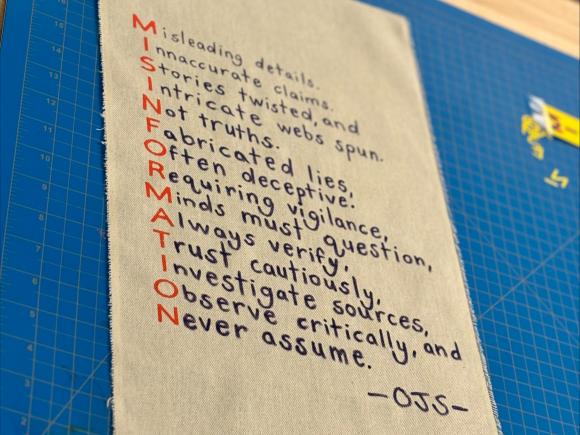 Misleading details.
Innaccurate claims.
Stories twisted, and
Intricate webs spun.
Not truths.
Fabricated lies,
Often deceptive.
Requiring vigilance,
Minds must question,
Always verify,
Trust cautiously,
Investigate sources,
Observe critically, and
Never assume.
-OJS-